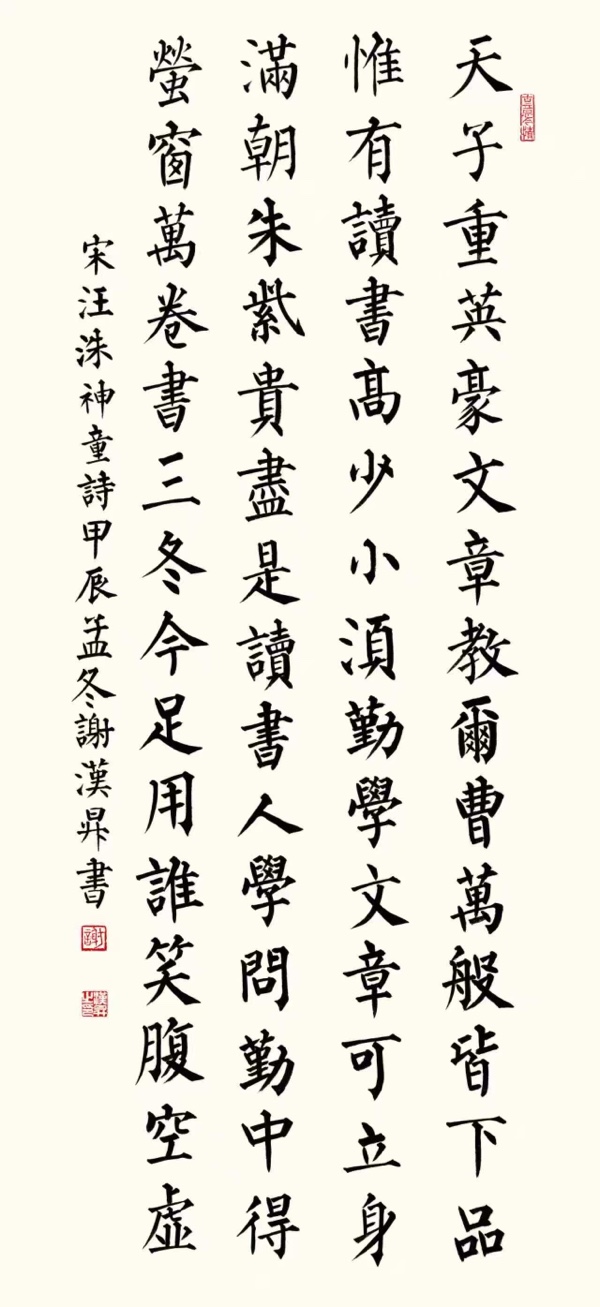 天子重英豪文章教爾曹萬般皆下品
惟有讀書髙少小須勤學文章可立身
滿朝朱紫貴盡是讀書人學問勤中得
螢窗萬卷書三冬今足用誰笑腹空虛
宋汪洙神童詩甲辰孟冬謝漢昇書
謝
漢昇之印